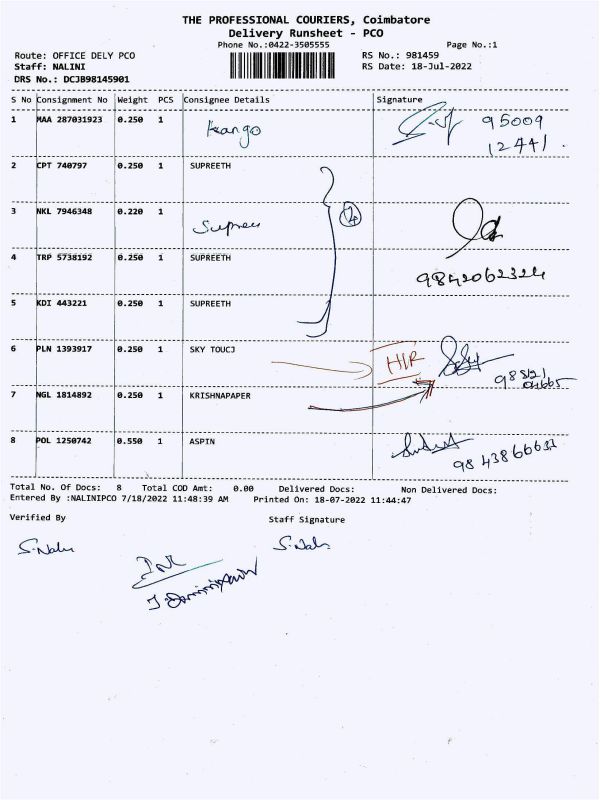 THE PROFESSIONAL COURIERS, Coimbatore
Delivery Runsheet - PCO
Phone No.:0422-3505555
Page No.:1
Route: OFFICE DELY PCO
RS No.: 981459
Staff: NALINI
RS Date: 18-Jul-2022
DRS No.: DCJB98145901
S No Consignment No Weight PCS Consignee Details Signature
1 MAA 287031923 0.250 1 Kango 95009
12441.
2 CPT 740797 0.250 1 SUPREETH
3 NKL 7946348 0.220 1 Supree
4 TRP 5738192 0.250 1 SUPREETH
9842062324
5 KDI 443221 0.250 1 SUPREETH
6 PLN 1393917 0.250 1 SKY TOUCJ H/R
7 NGL 1814892 0.250 1 KRISHNAPAPER
8 POL 1250742 0.550 1 ASPIN
Total No. Of Docs: 8 Total COD Amt: 0.00 Delivered Docs: Non Delivered Docs:
Entered By :NALINIPCO 7/18/2022 11:48:39 AM Printed On: 18-07-2022 11:44:47
Verified By Staff Signature
S.Nalu S.Nalu